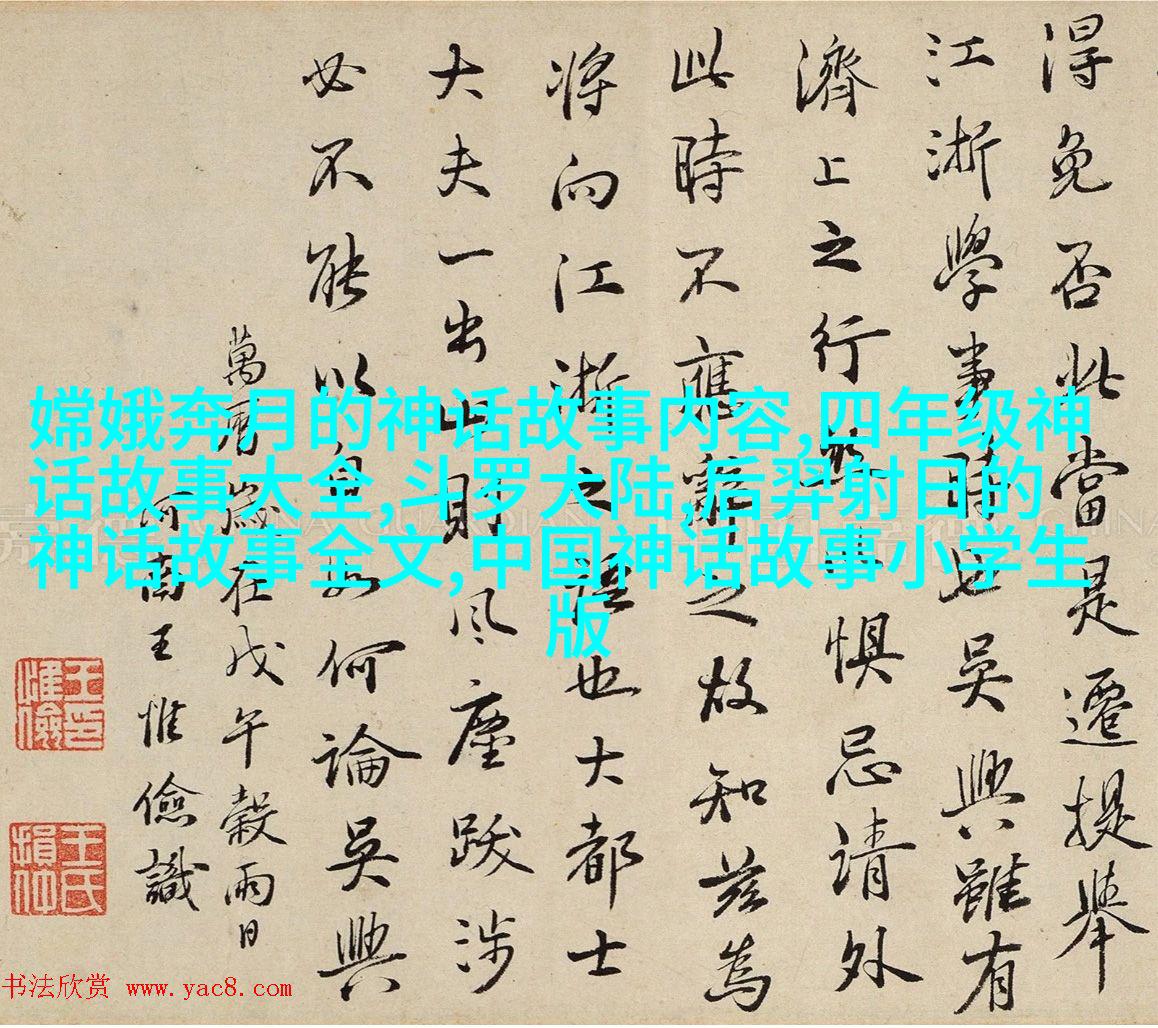 得免否此當是遷提舉
江浙學事時也吳興雖有
濟上之行懼忌請外
此時不應辭之故知茲為
將向江浙之語也大都士
大夫一出此則風塵跋涉
必不能以免如何論吳興
萬曆歲在戊午穀雨日
河南王惟儉識
王惟儉印
王氏損仲
嫦娥奔月的神话故事内容,四年级神
话故事大全,斗罗大陆,后羿射日的
神话故事全文,中国神话故事小学生
版
书法欣赏 www.yac8.com